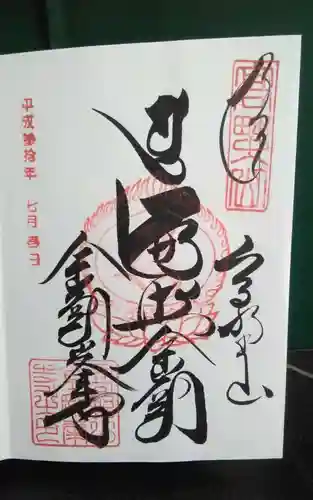 奉拝
高野山
高野山
遍照金剛
金剛峯寺
平成 拾年 七月 日